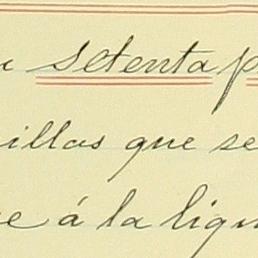 setenta p
illas que se
e á la liqu